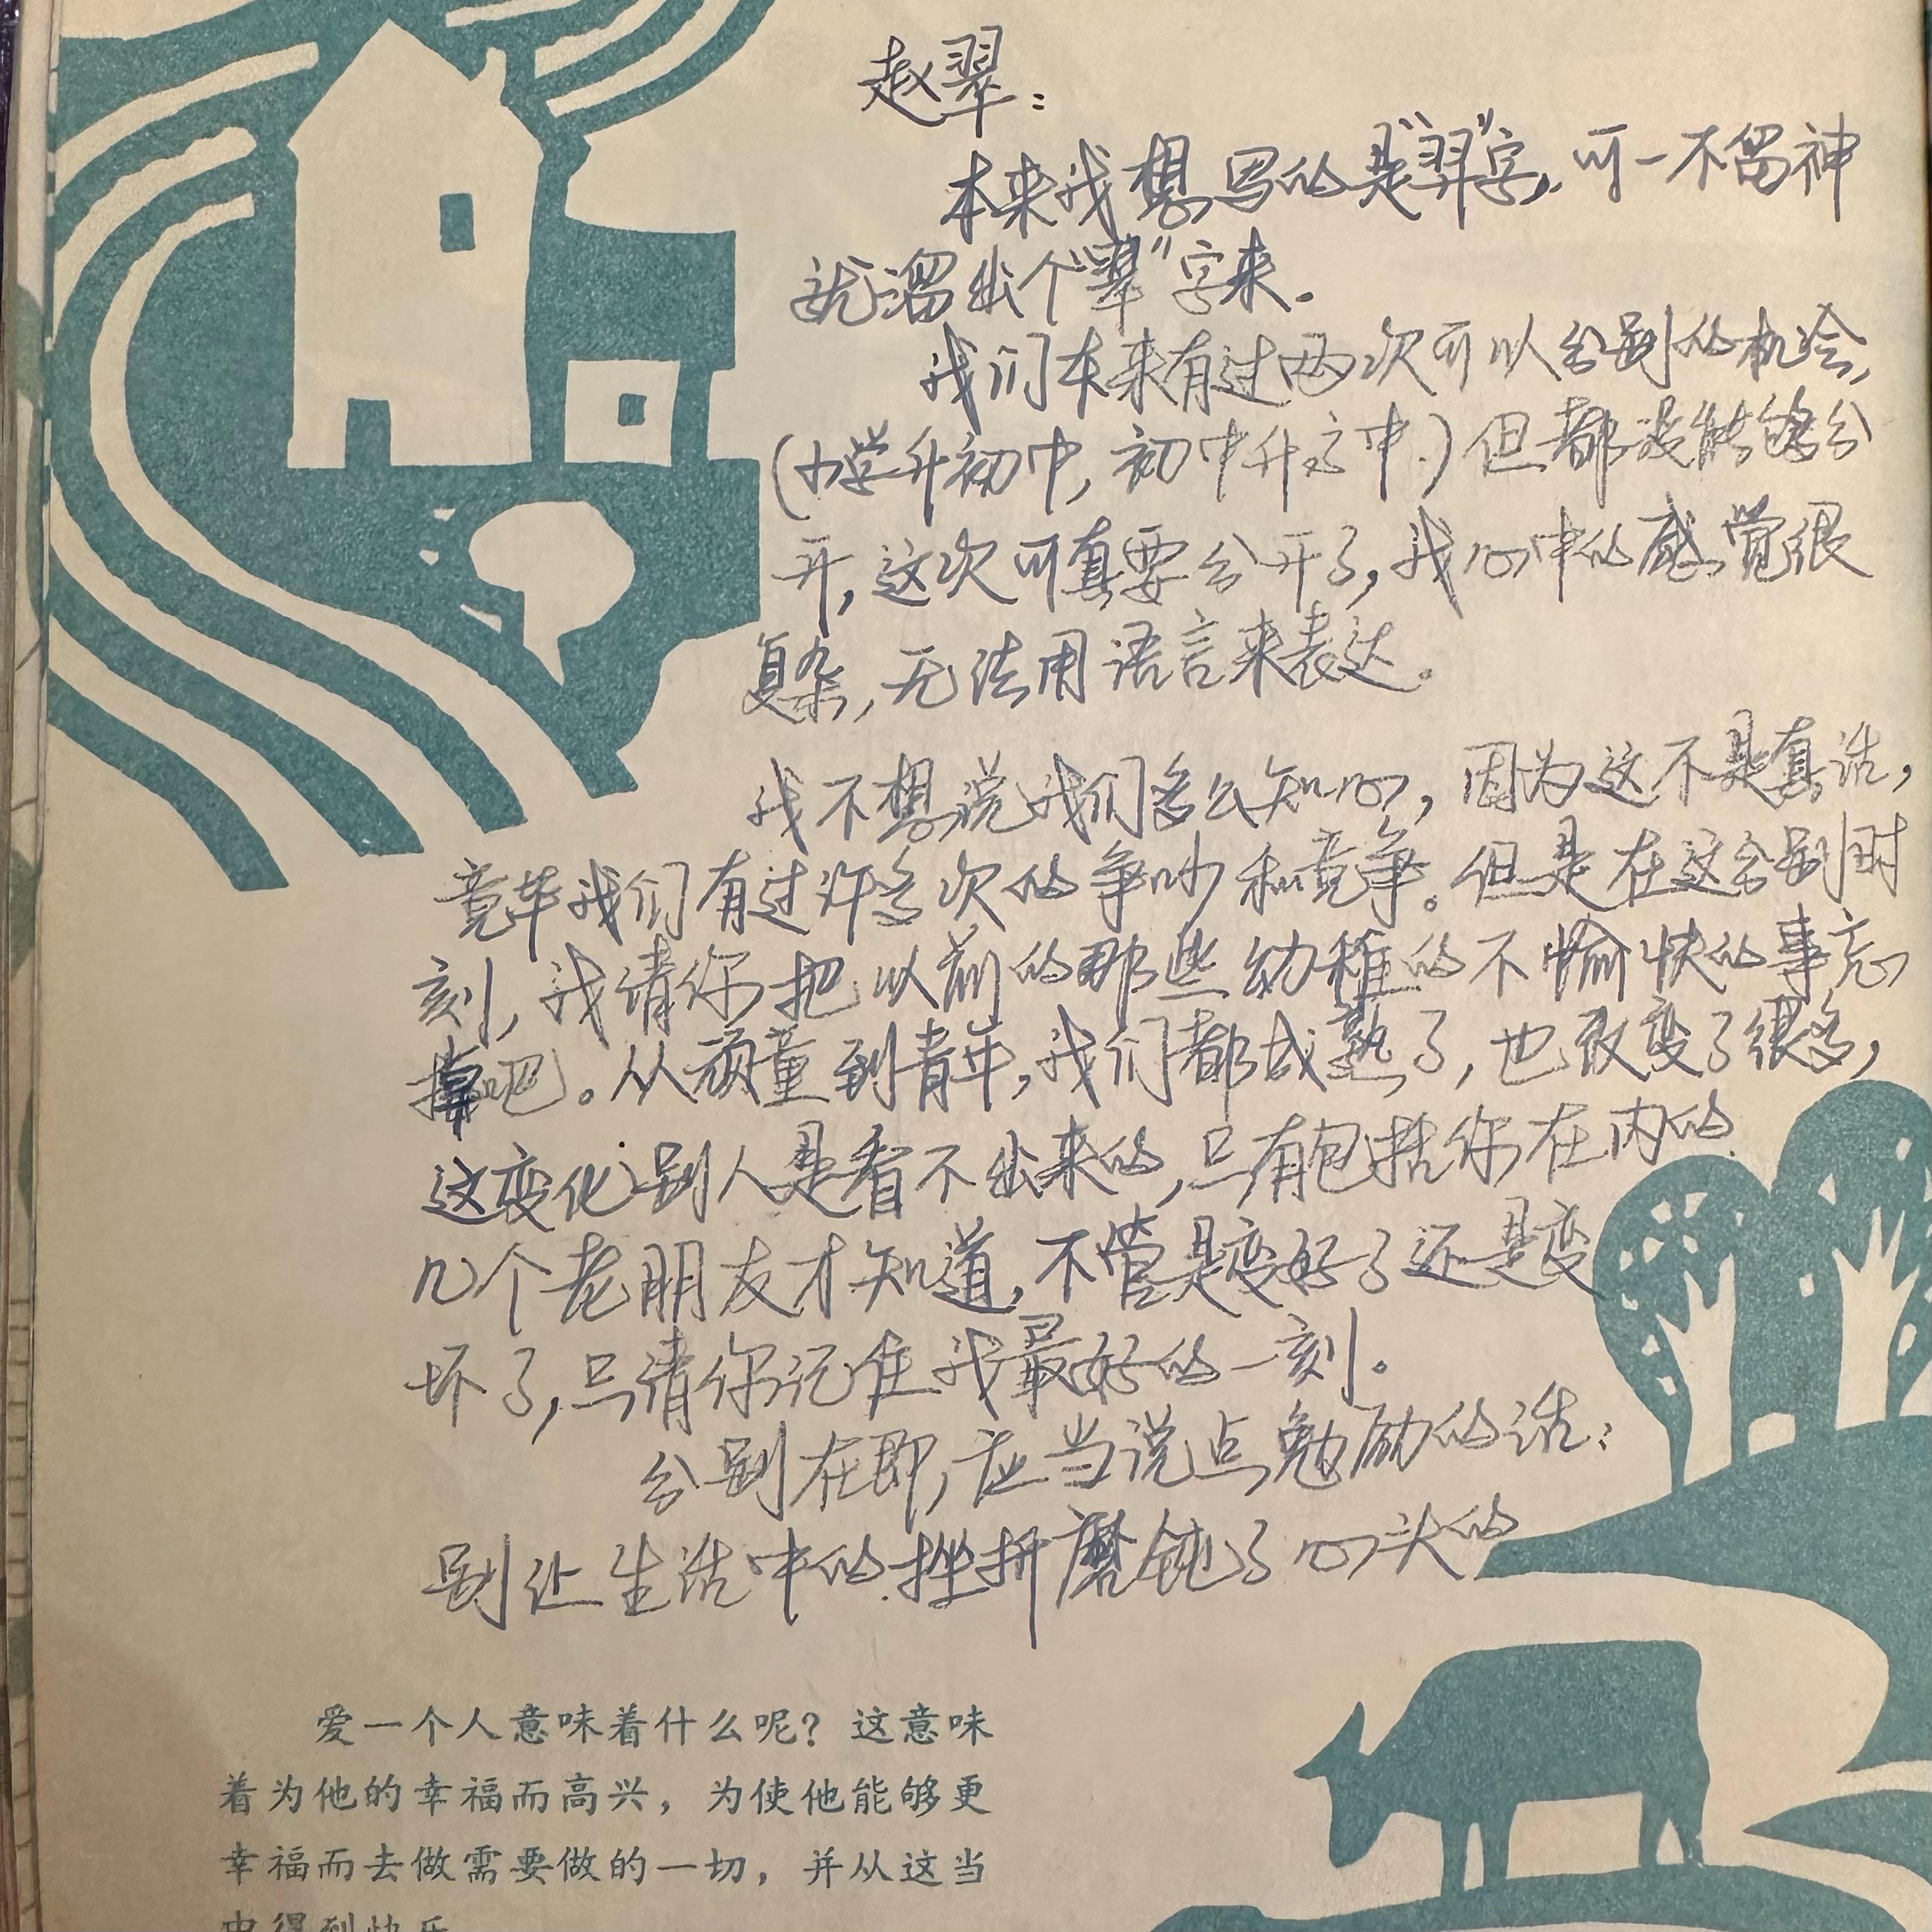 赵翠：
本来我想写的是“羿”字，可一不留神
就溜出个“翠”字来。
我们本来有过两次可以分别的机会，
（小学升初中，初中升高中）但都没能够分
开，这次可真要分开了，我心中的感觉很
复杂，无法用语言来表达。
我不想说我们多么知心，因为这不是真话，
竟毕我们有过许多次的争吵和竞争。但是在这分别时
刻，我请你把以前的那些幼稚的不愉快的事忘
掉吧。从顽童到青年，我们都成熟了，也改变了很多，
这变化别人是看不出来的，只有包括你在内的
几个老朋友才知道，不管是变好了还是变
坏了，只请你记住我最好的一刻。
分别在即，应当说点勉励的话：
别让生活中的挫折磨钝了心头的
爱一个人意味着什么呢？这意味
着为他的幸福而高兴，为使他能够更
幸福而去做需要做的一切，并从这当
中得到快乐